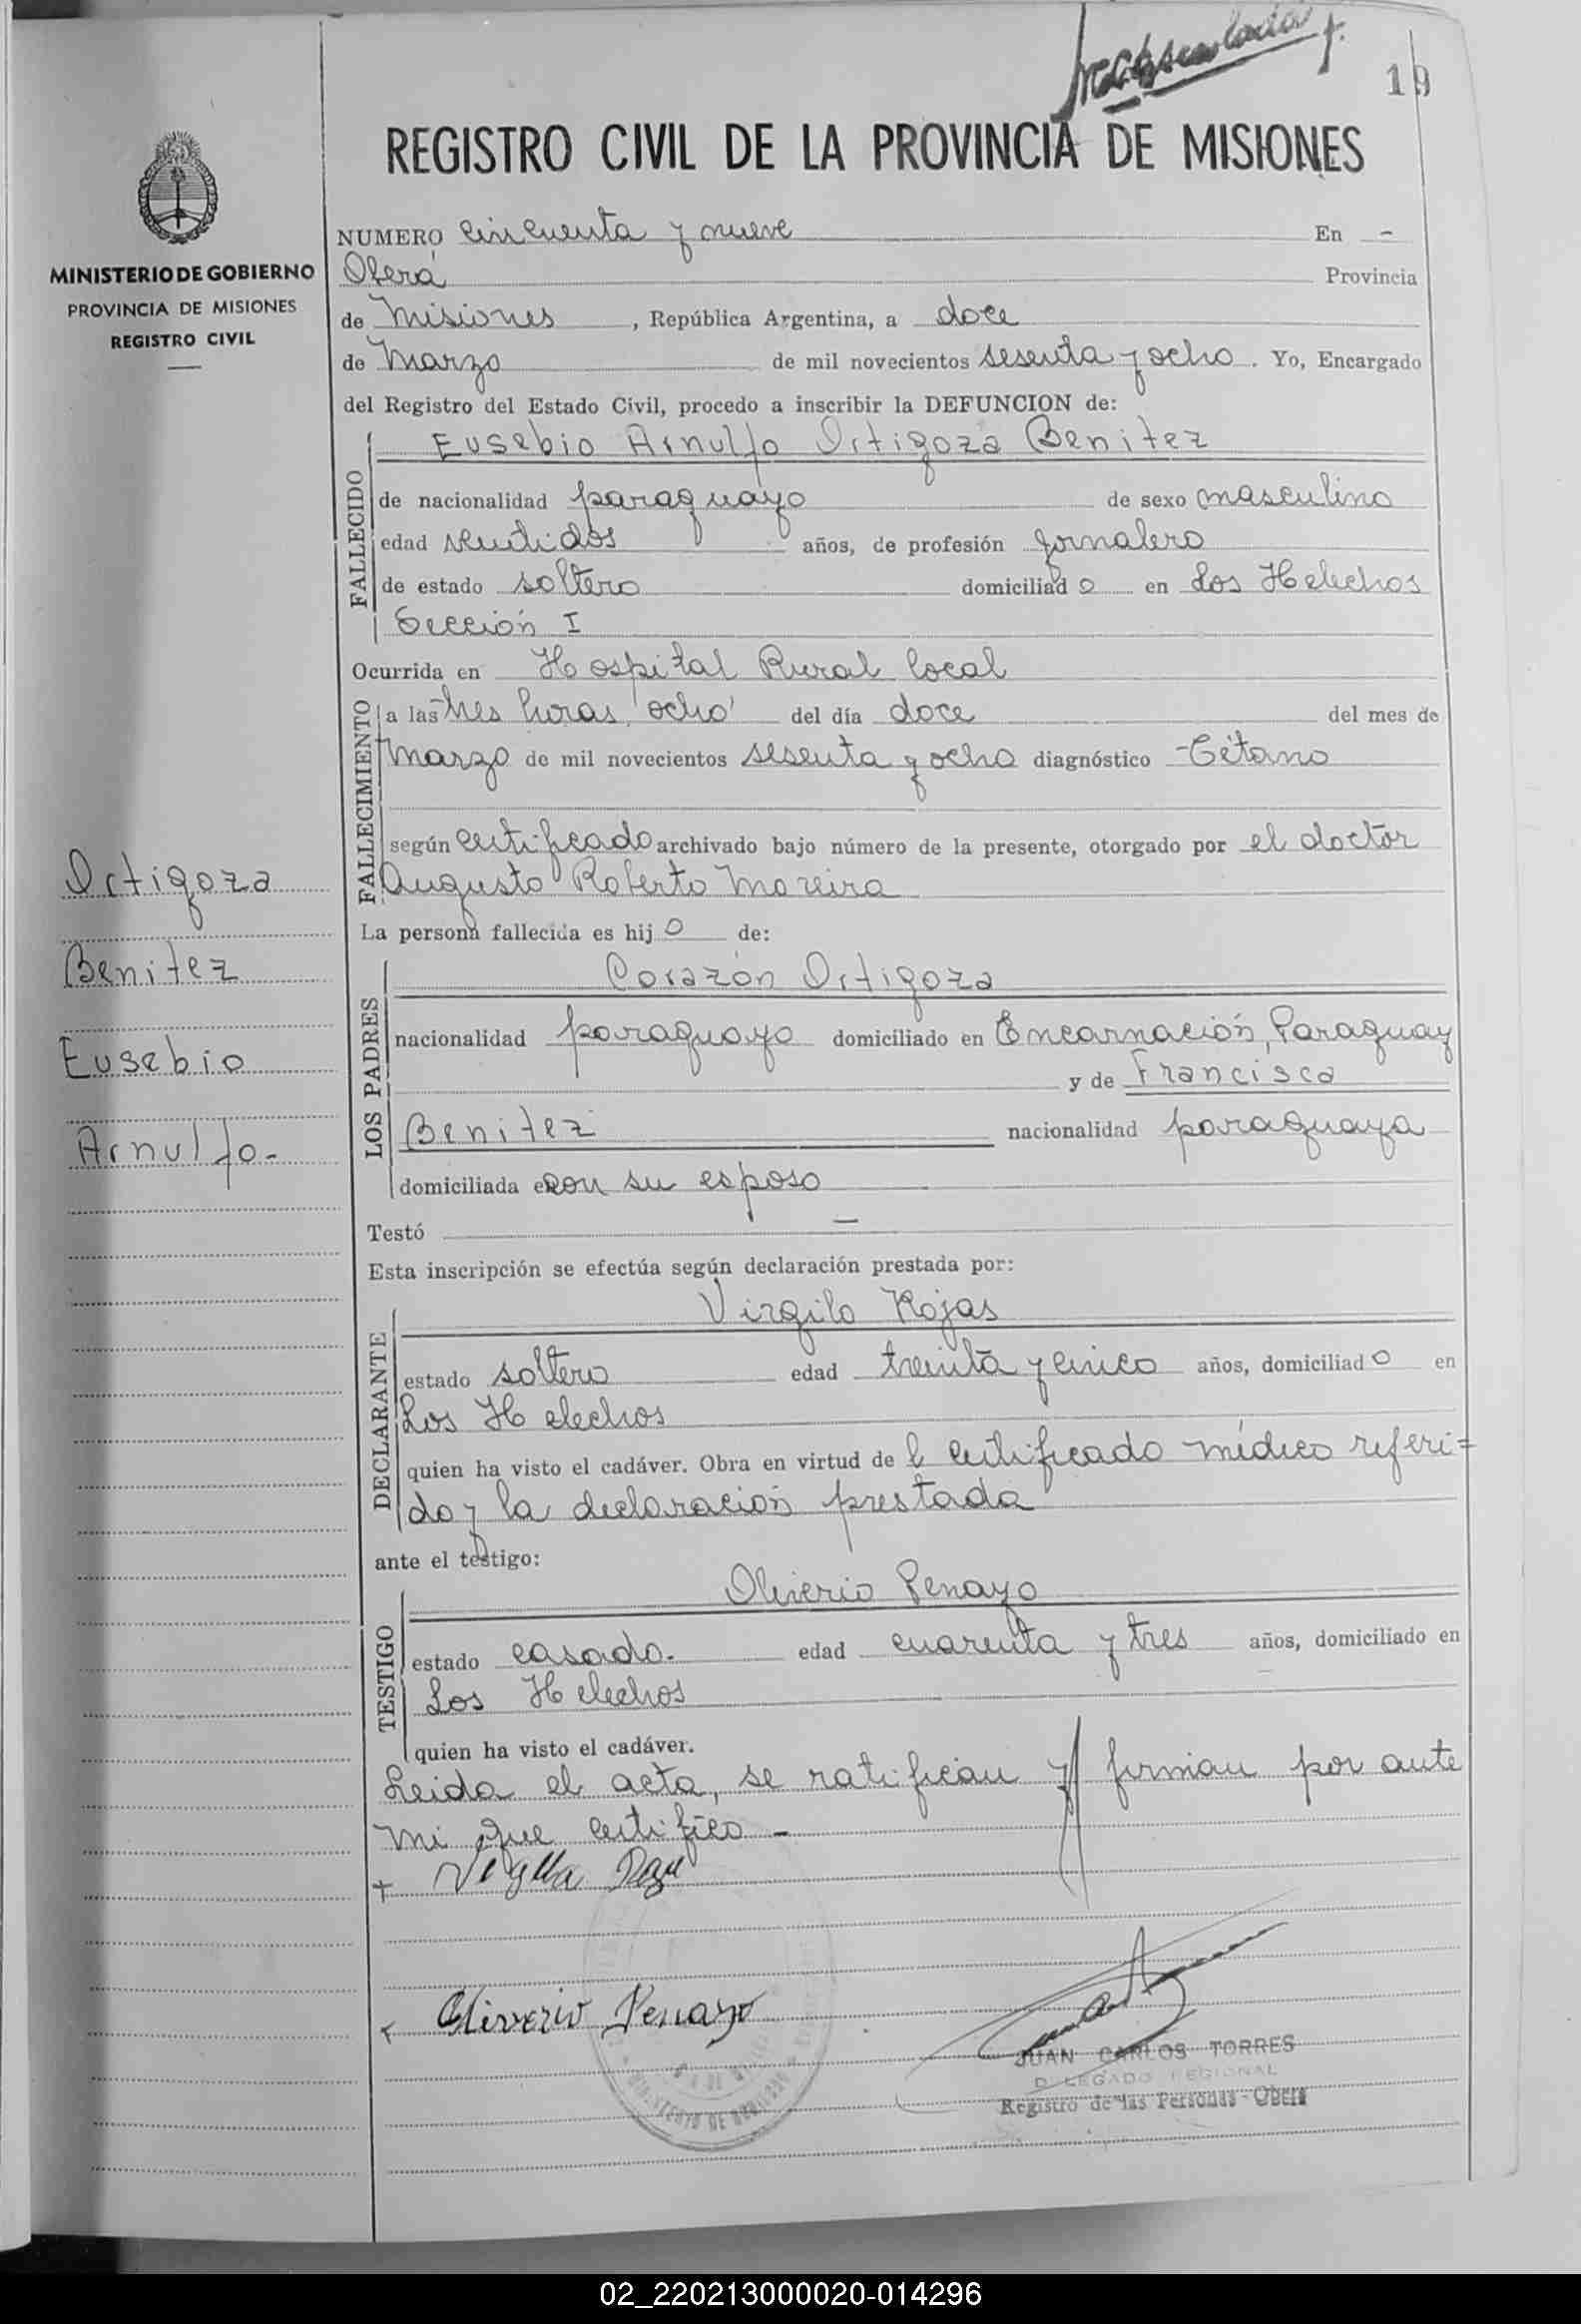 19
REGISTRO CIVIL DE LA PROVINCIA DE MISIONES
MINISTERIO DE GOBIERNO
PROVINCIA DE MISIONES
REGISTRO CIVIL
NUMERO cincuenta y nueve En -
Oberá Provincia
de Misiones, República Argentina, a doce
de Marzo de mil novecientos sesenta y ocho. Yo, Encargado
del Registro del Estado Civil, procedo a inscribir la DEFUNCION de:
FALLECIDO
Eusebio Arnulfo Ortigoza Benitez
de nacionalidad paraguayo de sexo masculino
edad ventidos años, de profesión jornalero
de estado soltero domiciliado en Los Helechos
Sección I
Ocurrida en Hospital Rural local
FALLECIMIENTO
a las tres horas, ocho' del día doce del mes de
Marzo de mil novecientos sesenta y ocho diagnóstico -Tétano
según certificado archivado bajo número de la presente, otorgado por el doctor
Augusto Roberto Moreira
Ortigoza
Benitez
Eusebio
Arnulfo.-
La persona fallecida es hijo de:
LOS PADRES
Corazón Ortigoza
nacionalidad paraguayo domiciliado en Encarnación, Paraguay
y de Francisca
Benitez nacionalidad paraguaya
domiciliada en con su esposo
Testó —
Esta inscripción se efectúa según declaración prestada por:
DECLARANTE
Virgilo Rojas
estado soltero edad treinta y cinco años, domiciliado en
Los Helechos
quien ha visto el cadáver. Obra en virtud de l certificado médico referi=
do y la declaración prestada
ante el testigo:
TESTIGO
Oliverio Penayo
estado casado.- edad cuarenta y tres años, domiciliado en
Los Helechos
quien ha visto el cadáver.
Leida el acta, se ratifican y firman por ante
mi que certifico -
Oliverio Penayo
JUAN CARLOS TORRES
DELEGADO REGIONAL
Registro de las Personas - Oberá
02_220213000020-014296